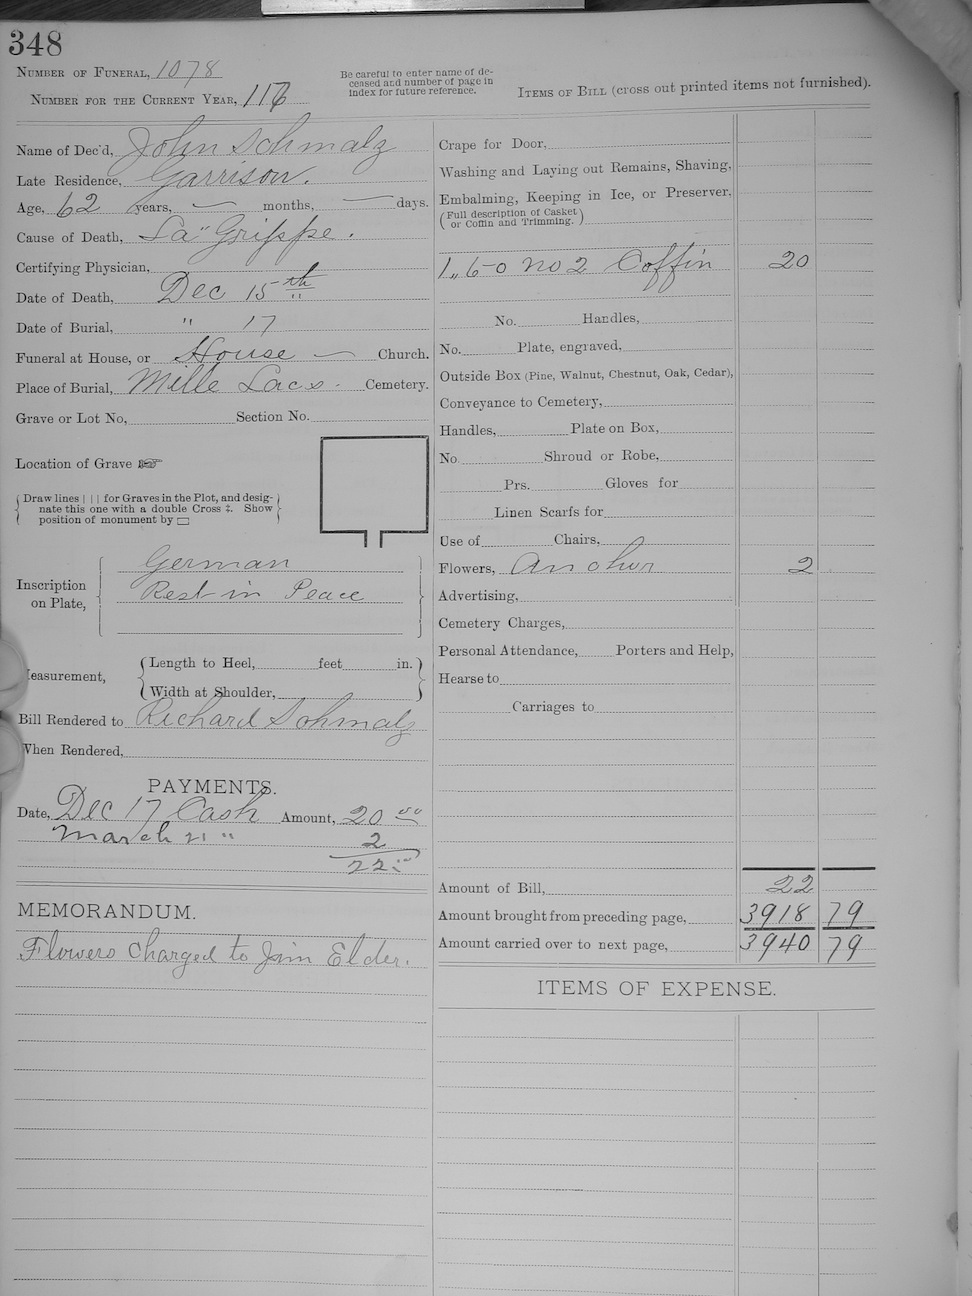 348
Number of Funeral, 1078
Number for the Current Year, 116
Be careful to enter name of de-
ceased and number of page in
index for future reference.
Items of Bill (cross out printed items not furnished).
Name of Dec'd, John Schmalz
Late Residence, Garrison.
Age, 62 years, — months, — days.
Cause of Death, La" Grippe.
Certifying Physician,
Date of Death, Dec 15th
Date of Burial, " 17
Funeral at House, or House — Church.
Place of Burial, Mille Lacs. Cemetery.
Grave or Lot No, Section No.
Location of Grave ☞
Draw lines | | | for Graves in the Plot, and desig-
nate this one with a double Cross ‡. Show
position of monument by ▭
Inscription
on Plate,
German
Rest in Peace
Measurement,
Length to Heel, feet in.
Width at Shoulder,
Bill Rendered to Richard Schmalz
When Rendered,
PAYMENTS.
Date, Dec 17 Cash Amount, 20 00
March 21 " 2
22 00
MEMORANDUM.
Flowers charged to Jim Elder.
Crape for Door,
Washing and Laying out Remains, Shaving,
Embalming, Keeping in Ice, or Preserver.
(Full description of Casket
or Coffin and Trimming.)
1, 6-0 no 2 Coffin 20
No. Handles,
No. Plate, engraved,
Outside Box (Pine, Walnut, Chestnut, Oak, Cedar),
Conveyance to Cemetery,
Handles, Plate on Box,
No. Shroud or Robe,
Prs. Gloves for
Linen Scarfs for
Use of Chairs,
Flowers, Anchor 2
Advertising,
Cemetery Charges,
Personal Attendance, Porters and Help,
Hearse to
Carriages to
Amount of Bill, 22
Amount brought from preceding page, 3918 79
Amount carried over to next page, 3940 79
ITEMS OF EXPENSE.